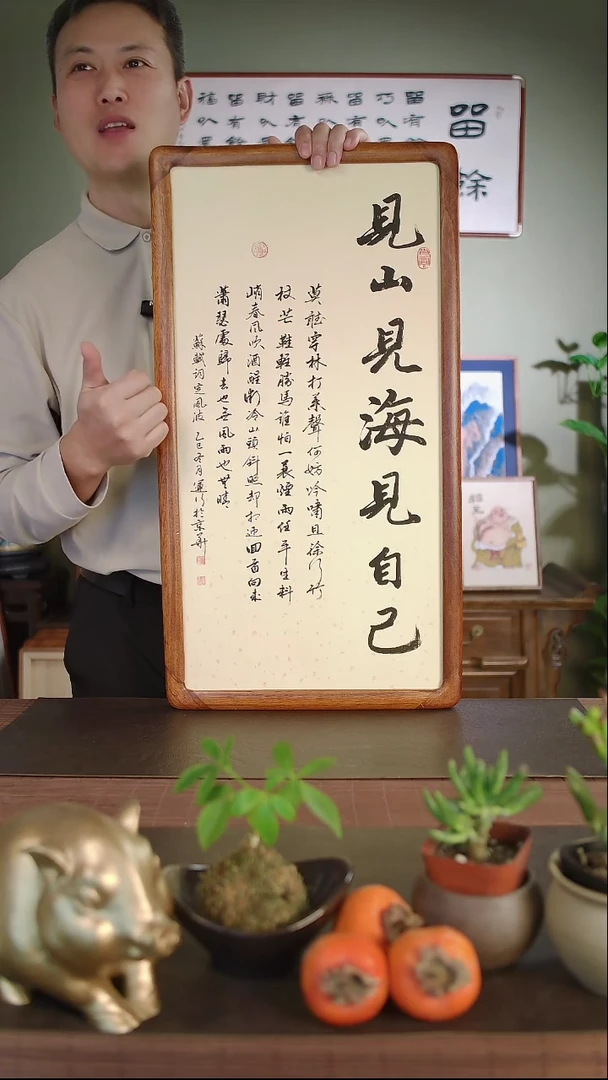 見山見海見自己
莫聽穿林打葉聲何妨吟嘯且徐行竹
杖芒鞋輕勝馬誰怕一蓑煙雨任平生料
峭春風吹酒醒微冷山頭斜照却相迎回首向來
蕭瑟處歸去也无風雨也無晴
蘇軾詞定風波 乙巳冬月 於京華
留餘
留有
巧以
留有
祿以
留有
財以
留有餘
福以